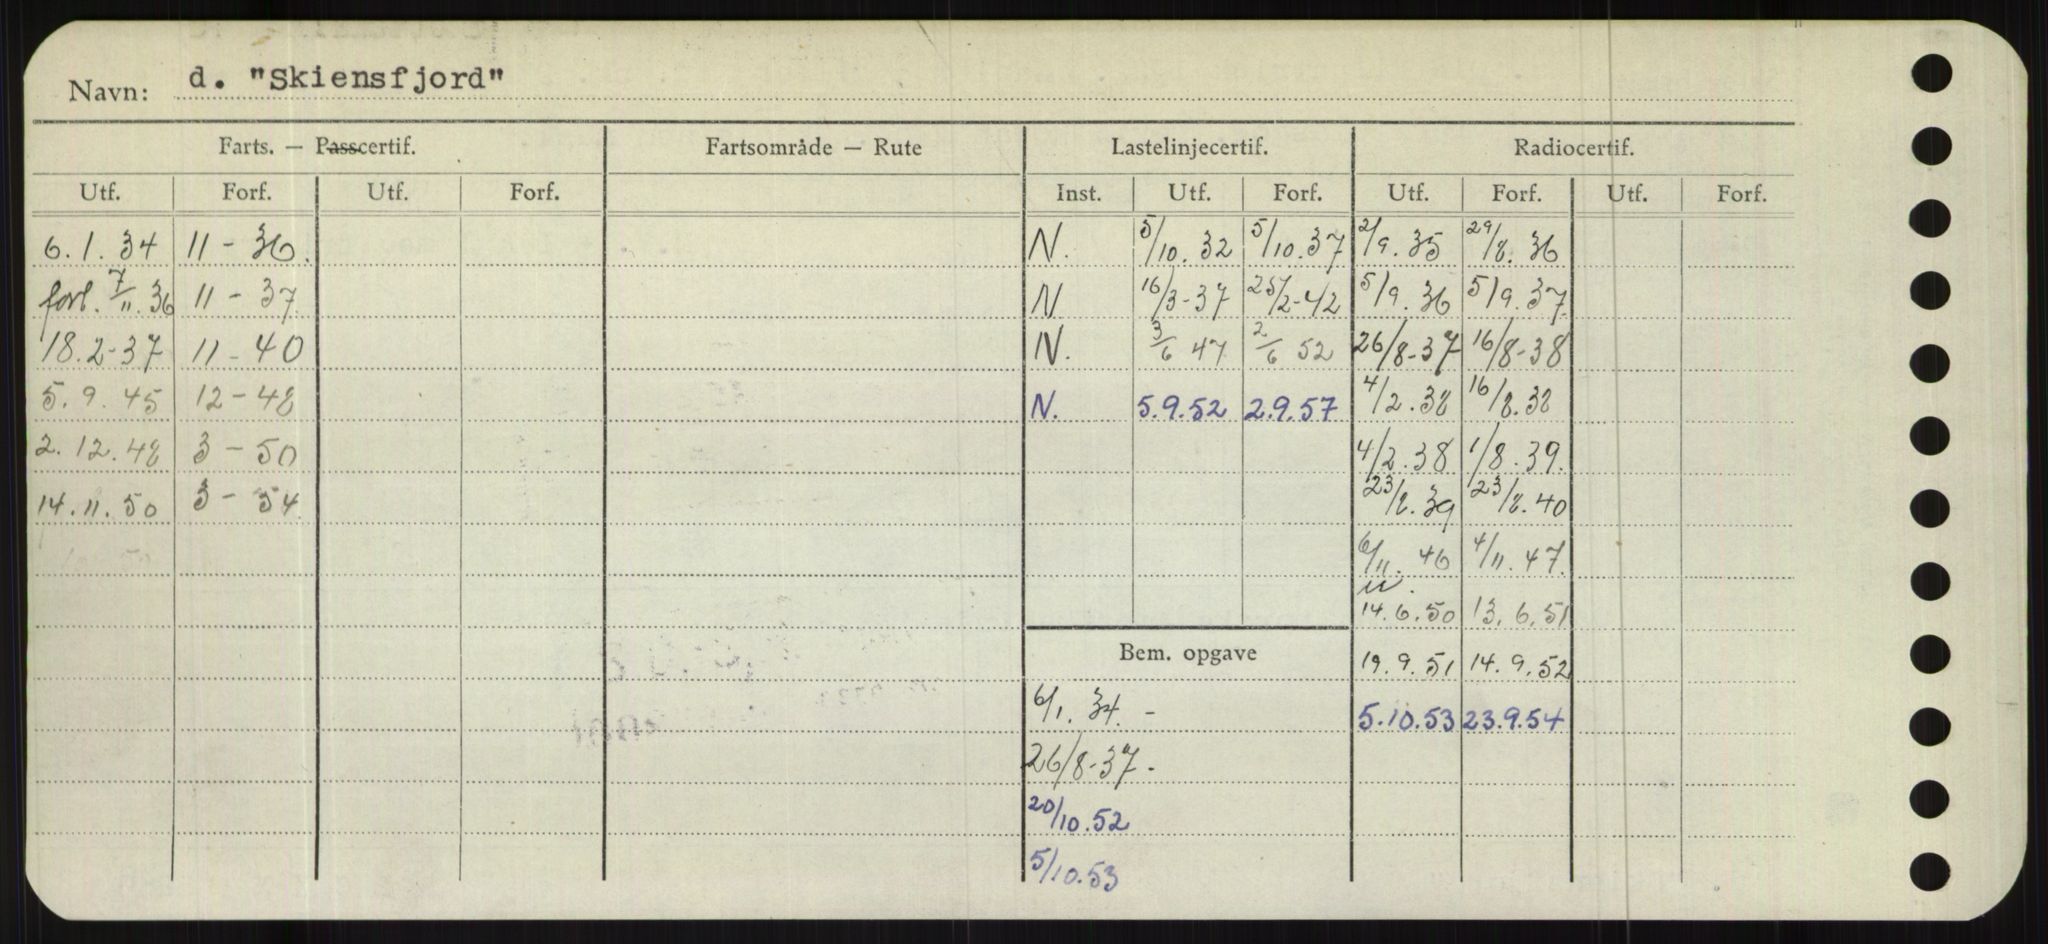 Navn: d. "Skiensfjord"
Farts. — Passcertif. Fartsområde — Rute Lastelinjecertif. Radiocertif.
Utf. Forf. Utf. Forf. Inst. Utf. Forf. Utf. Forf. Utf. Forf.
6.1.34 11-36. N. 5/10.32 5/10.37 2/9.35 29/8.36
forl. 7/11.36 11-37 N 16/3-37 25/2-42 5/9.36 5/9.37
18.2-37 11-40 N. 3/6 47 2/6 52 26/8-37 16/8-38
5.9.45 12-48 N. 5.9.52 2.9.57 4/2.38 16/8.38
2.12.48 3-50 4/2.38 1/8.39.
14.11.50 3-54 23/8.39 23/8.40
6/11.46 4/11.47
14.6.50 13.6.51
Bem. opgave 19.9.51 14.9.52
6/1.34.- 5.10.53 23.9.54
26/8-37-
20/10.52
5/10.53